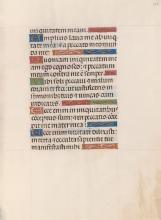 iniquitatem meam
Amplius lava me ab iniqui
tate mea: et a peccato meo mun
da me.
Quoniam iniquitatem meam
ego cognosco: et peccatum
meum contra me est semper
Tibi soli peccavi et malum
coram te feci: ut iustificeris in
sermonibus tuis et vincas cum
iudicaris
Ecce enim in iniquitatibus con
ceptus sum: et in peccatis con
cepit me mater mea
Ecce enim veritatem dilexisti:
incerta et occulta sapientie tue
manifestasti michi